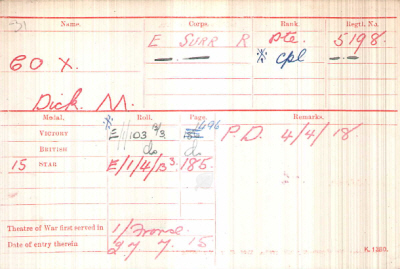 31
Name. Corps. Rank Regtl. No.
E SURR R Pte. 5198.
COX. — " — * Cpl — " —
Dick. M.
Medal. Roll. Page. Remarks.
VICTORY * E/1/103 B/3 1696 P.D. 4/4/18
BRITISH do do
15 STAR E/1/4/B3 185.
Theatre of War first served in 1/France
Date of entry therein 27 7. 15
K. 1380.